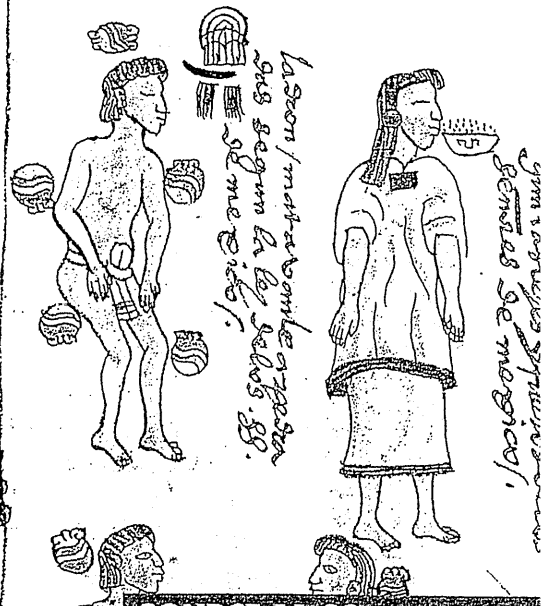 ladron / mataronle a pedra
das segun la ley de los .SS.
de mexico /.
leyes y fueros
señores de mexico /.